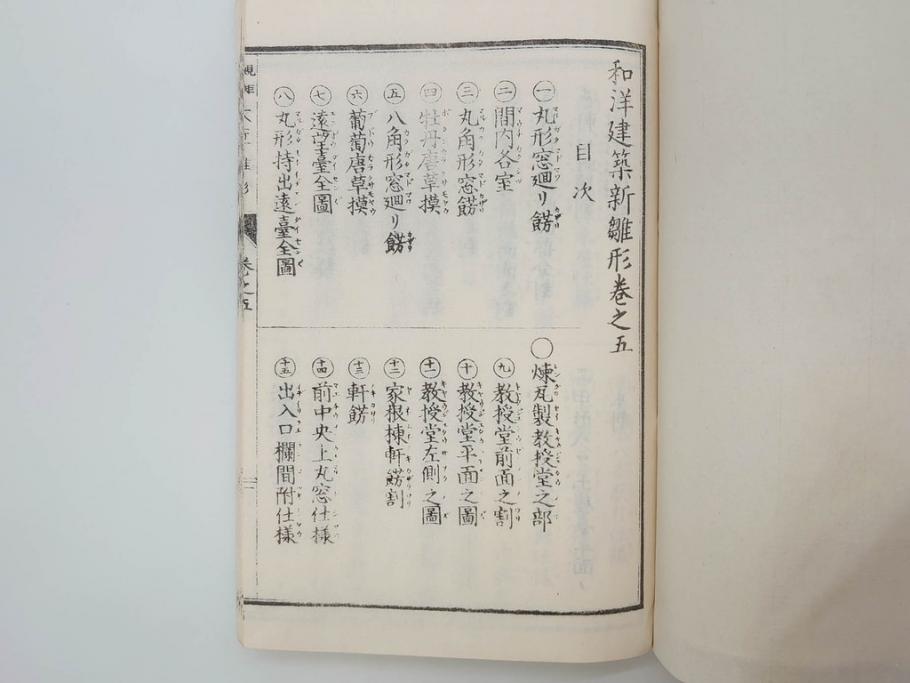 和洋建築新雛形卷之五
目次
㊀丸形窓廻リ餝
㊁間内各室
㊂丸角形窓餝
㊃牡丹唐草摸
㊄八角形窓廻リ餝
㊅葡萄唐草摸
㊆遠望臺全圖
㊇丸形持出遠臺全圖
〇煉瓦製教授堂之部
㊈教授堂前面之割
㊉教授堂平面之圖
十一教授堂左側之圖
十二家根棟軒餝割
十三軒餝
十四前中央上丸窓仕様
十五出入口欄間附仕様
卷之五